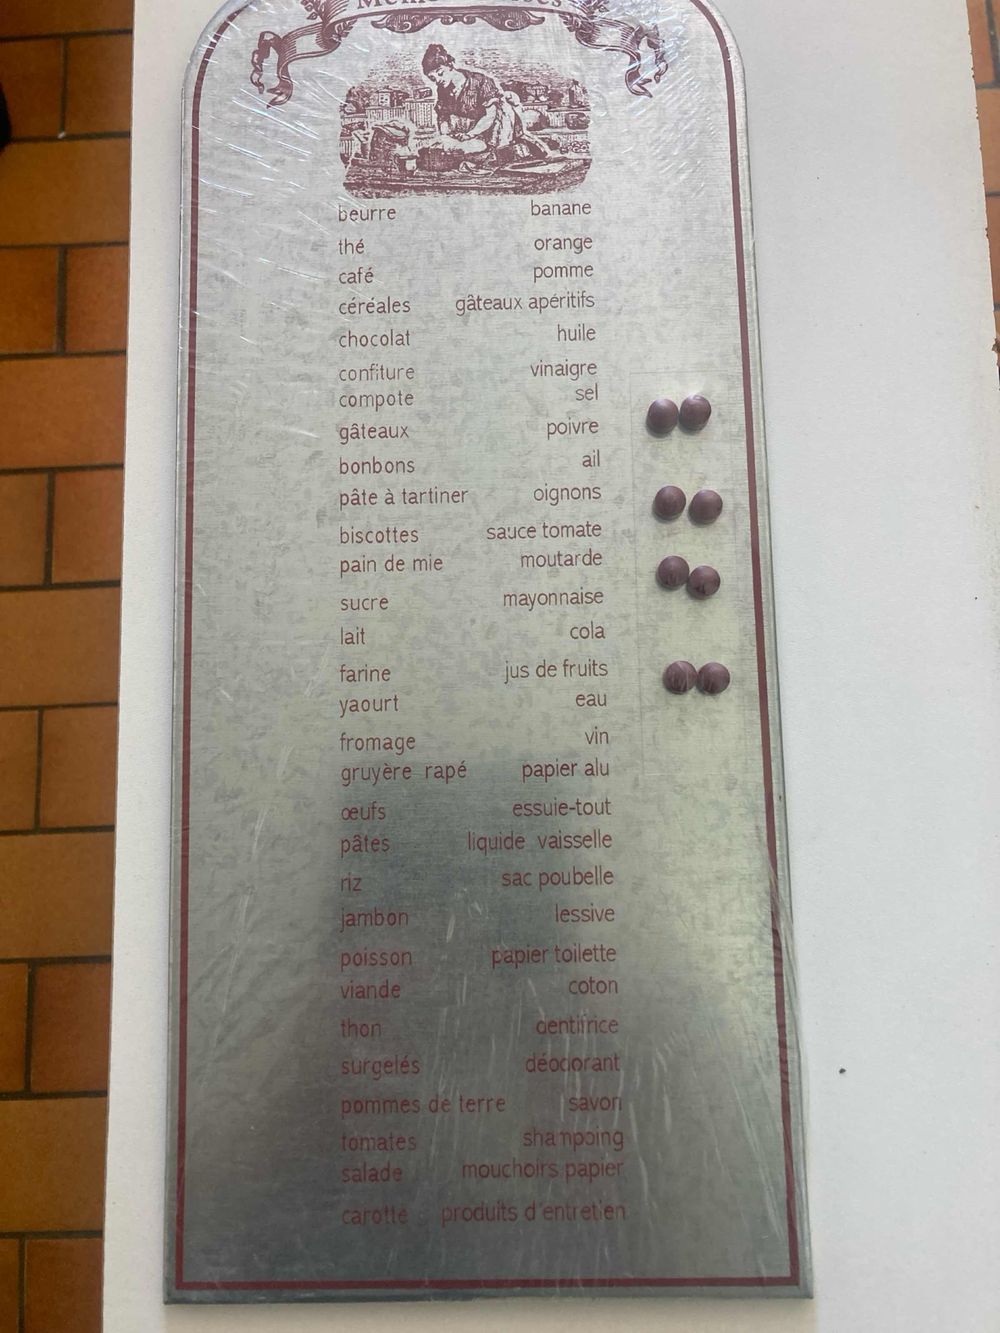 beurre banane
thé orange
café pomme
céréales gâteaux apéritifs
chocolat huile
confiture vinaigre
compote sel
gâteaux poivre
bonbons ail
pâte à tartiner oignons
biscottes sauce tomate
pain de mie moutarde
sucre mayonnaise
lait cola
farine jus de fruits
yaourt eau
fromage vin
gruyère rapé papier alu
œufs essuie-tout
pâtes liquide vaisselle
riz sac poubelle
jambon lessive
poisson papier toilette
viande coton
thon dentifrice
surgelés déodorant
pommes de terre savon
tomates shampoing
salade mouchoirs papier
carotte produits d'entretien